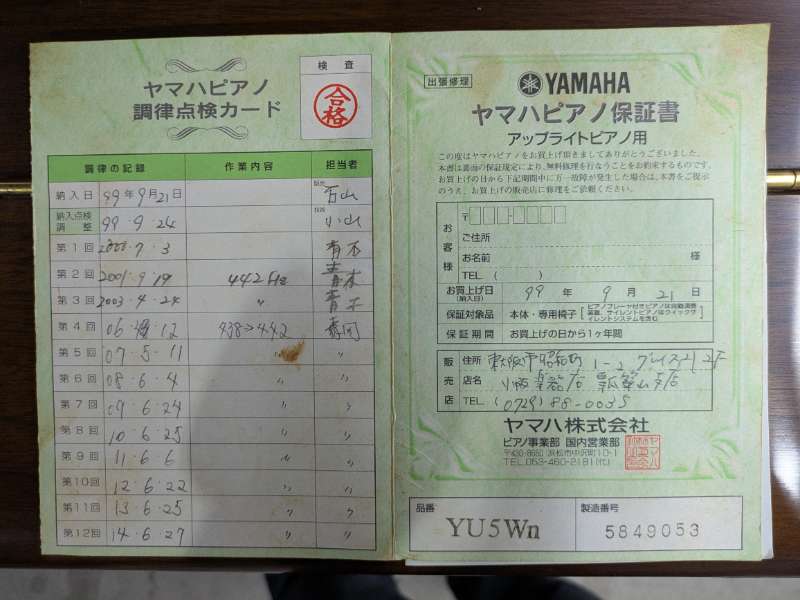 ヤマハピアノ
調律点検カード
検査
合格
調律の記録 作業内容 担当者
納入日 99年9月21日
納入点検調整 99.9.24 小山
第1回 2000.7.3 青木
第2回 2001.9.19 442Hz 青木
第3回 2003.4.24 〃 青木
第4回 06.12 438→442
第5回 07.5.11 〃 〃
第6回 08.6.4 〃 〃
第7回 09.6.24 〃 〃
第8回 10.6.25 〃 〃
第9回 11.6.6 〃 〃
第10回 12.6.22 〃 〃
第11回 13.6.25 〃 〃
第12回 14.6.27 〃 〃
出張修理
YAMAHA
ヤマハピアノ保証書
アップライトピアノ用
この度はヤマハピアノをお買上げ頂きましてありがとうございました。
本書は裏面の保証規定により、無料修理を行なうことをお約束するものです。
お買上げの日から下記期間中に万一故障が発生した場合は、本書をご提示
のうえ、お買上げの販売店に修理をご依頼ください。
お客様
〒
ご住所
お名前 様
TEL ( )
お買上げ日(納入日) 99年9月21日
保証対象品 本体・専用椅子
保証期間 お買上げの日から1ヶ年間
販売店
住所 1-2 2F
店名
TEL (0729)88-0035
ヤマハ株式会社
ピアノ事業部 国内営業部
〒430-8650 浜松市中沢町10-1
TEL 053-460-2181(代)
品番 YU5Wn
製造番号 5849053